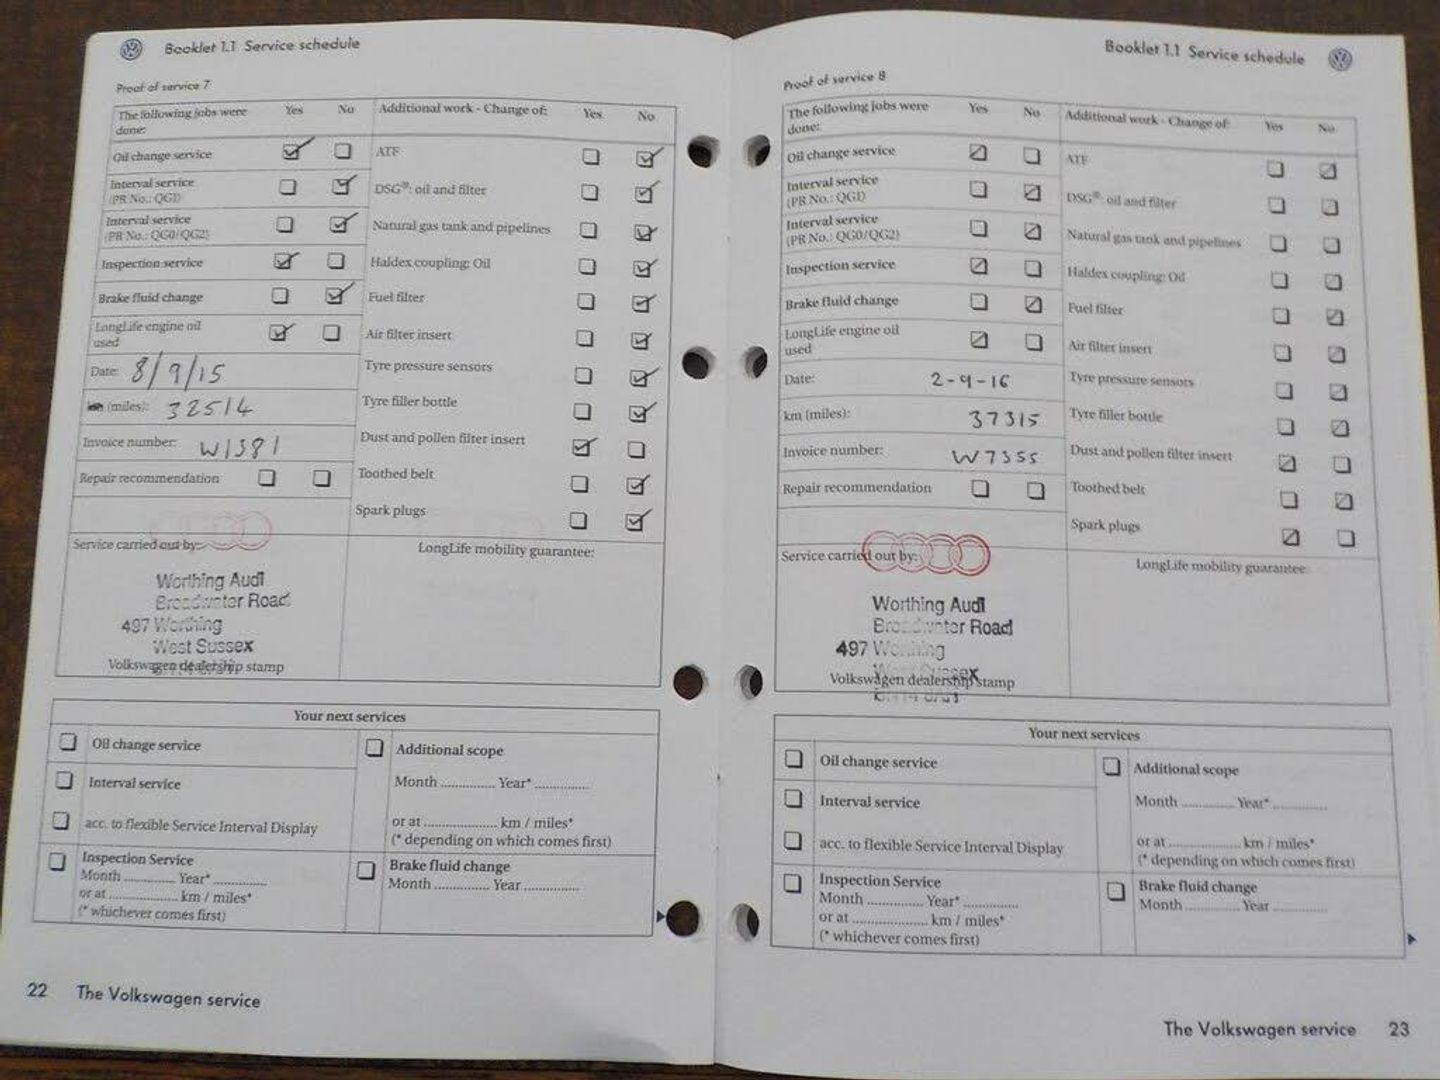 Booklet 1.1 Service schedule
Proof of service 7
The following jobs were done: Yes No
Oil change service
Interval service
(PR No.: QGI)
Interval service
(PR No.: QG0/QG2)
Inspection service
Brake fluid change
LongLife engine oil
used
Date: 8/9/15
km (miles): 32514
Invoice number: W1381
Repair recommendation
Additional work - Change of: Yes No
ATF
DSG®: oil and filter
Natural gas tank and pipelines
Haldex coupling: Oil
Fuel filter
Air filter insert
Tyre pressure sensors
Tyre filler bottle
Dust and pollen filter insert
Toothed belt
Spark plugs
Service carried out by:
Worthing Audi
Broadwater Road
497 Worthing
West Sussex
Volkswagen dealership stamp
LongLife mobility guarantee:
Your next services
Oil change service
Interval service
acc. to flexible Service Interval Display
Inspection Service
Month ............ Year* ............
or at ............ km / miles*
(* whichever comes first)
Additional scope
Month ............ Year* ............
or at ............ km / miles*
(* depending on which comes first)
Brake fluid change
Month ............ Year ............
22 The Volkswagen service
Booklet 1.1 Service schedule
Proof of service 8
The following jobs were done: Yes No
Oil change service
Interval service
(PR No.: QGI)
Interval service
(PR No.: QG0/QG2)
Inspection service
Brake fluid change
LongLife engine oil
used
Date: 2-9-16
km (miles): 37315
Invoice number: W7355
Repair recommendation
Additional work - Change of: Yes No
ATF
DSG®: oil and filter
Natural gas tank and pipelines
Haldex coupling: Oil
Fuel filter
Air filter insert
Tyre pressure sensors
Tyre filler bottle
Dust and pollen filter insert
Toothed belt
Spark plugs
Service carried out by:
Worthing Audi
Broadwater Road
497 Worthing
West Sussex
Volkswagen dealership stamp
LongLife mobility guarantee:
Your next services
Oil change service
Interval service
acc. to flexible Service Interval Display
Inspection Service
Month ............ Year* ............
or at ............ km / miles*
(* whichever comes first)
Additional scope
Month ............ Year* ............
or at ............ km / miles*
(* depending on which comes first)
Brake fluid change
Month ............ Year ............
The Volkswagen service 23